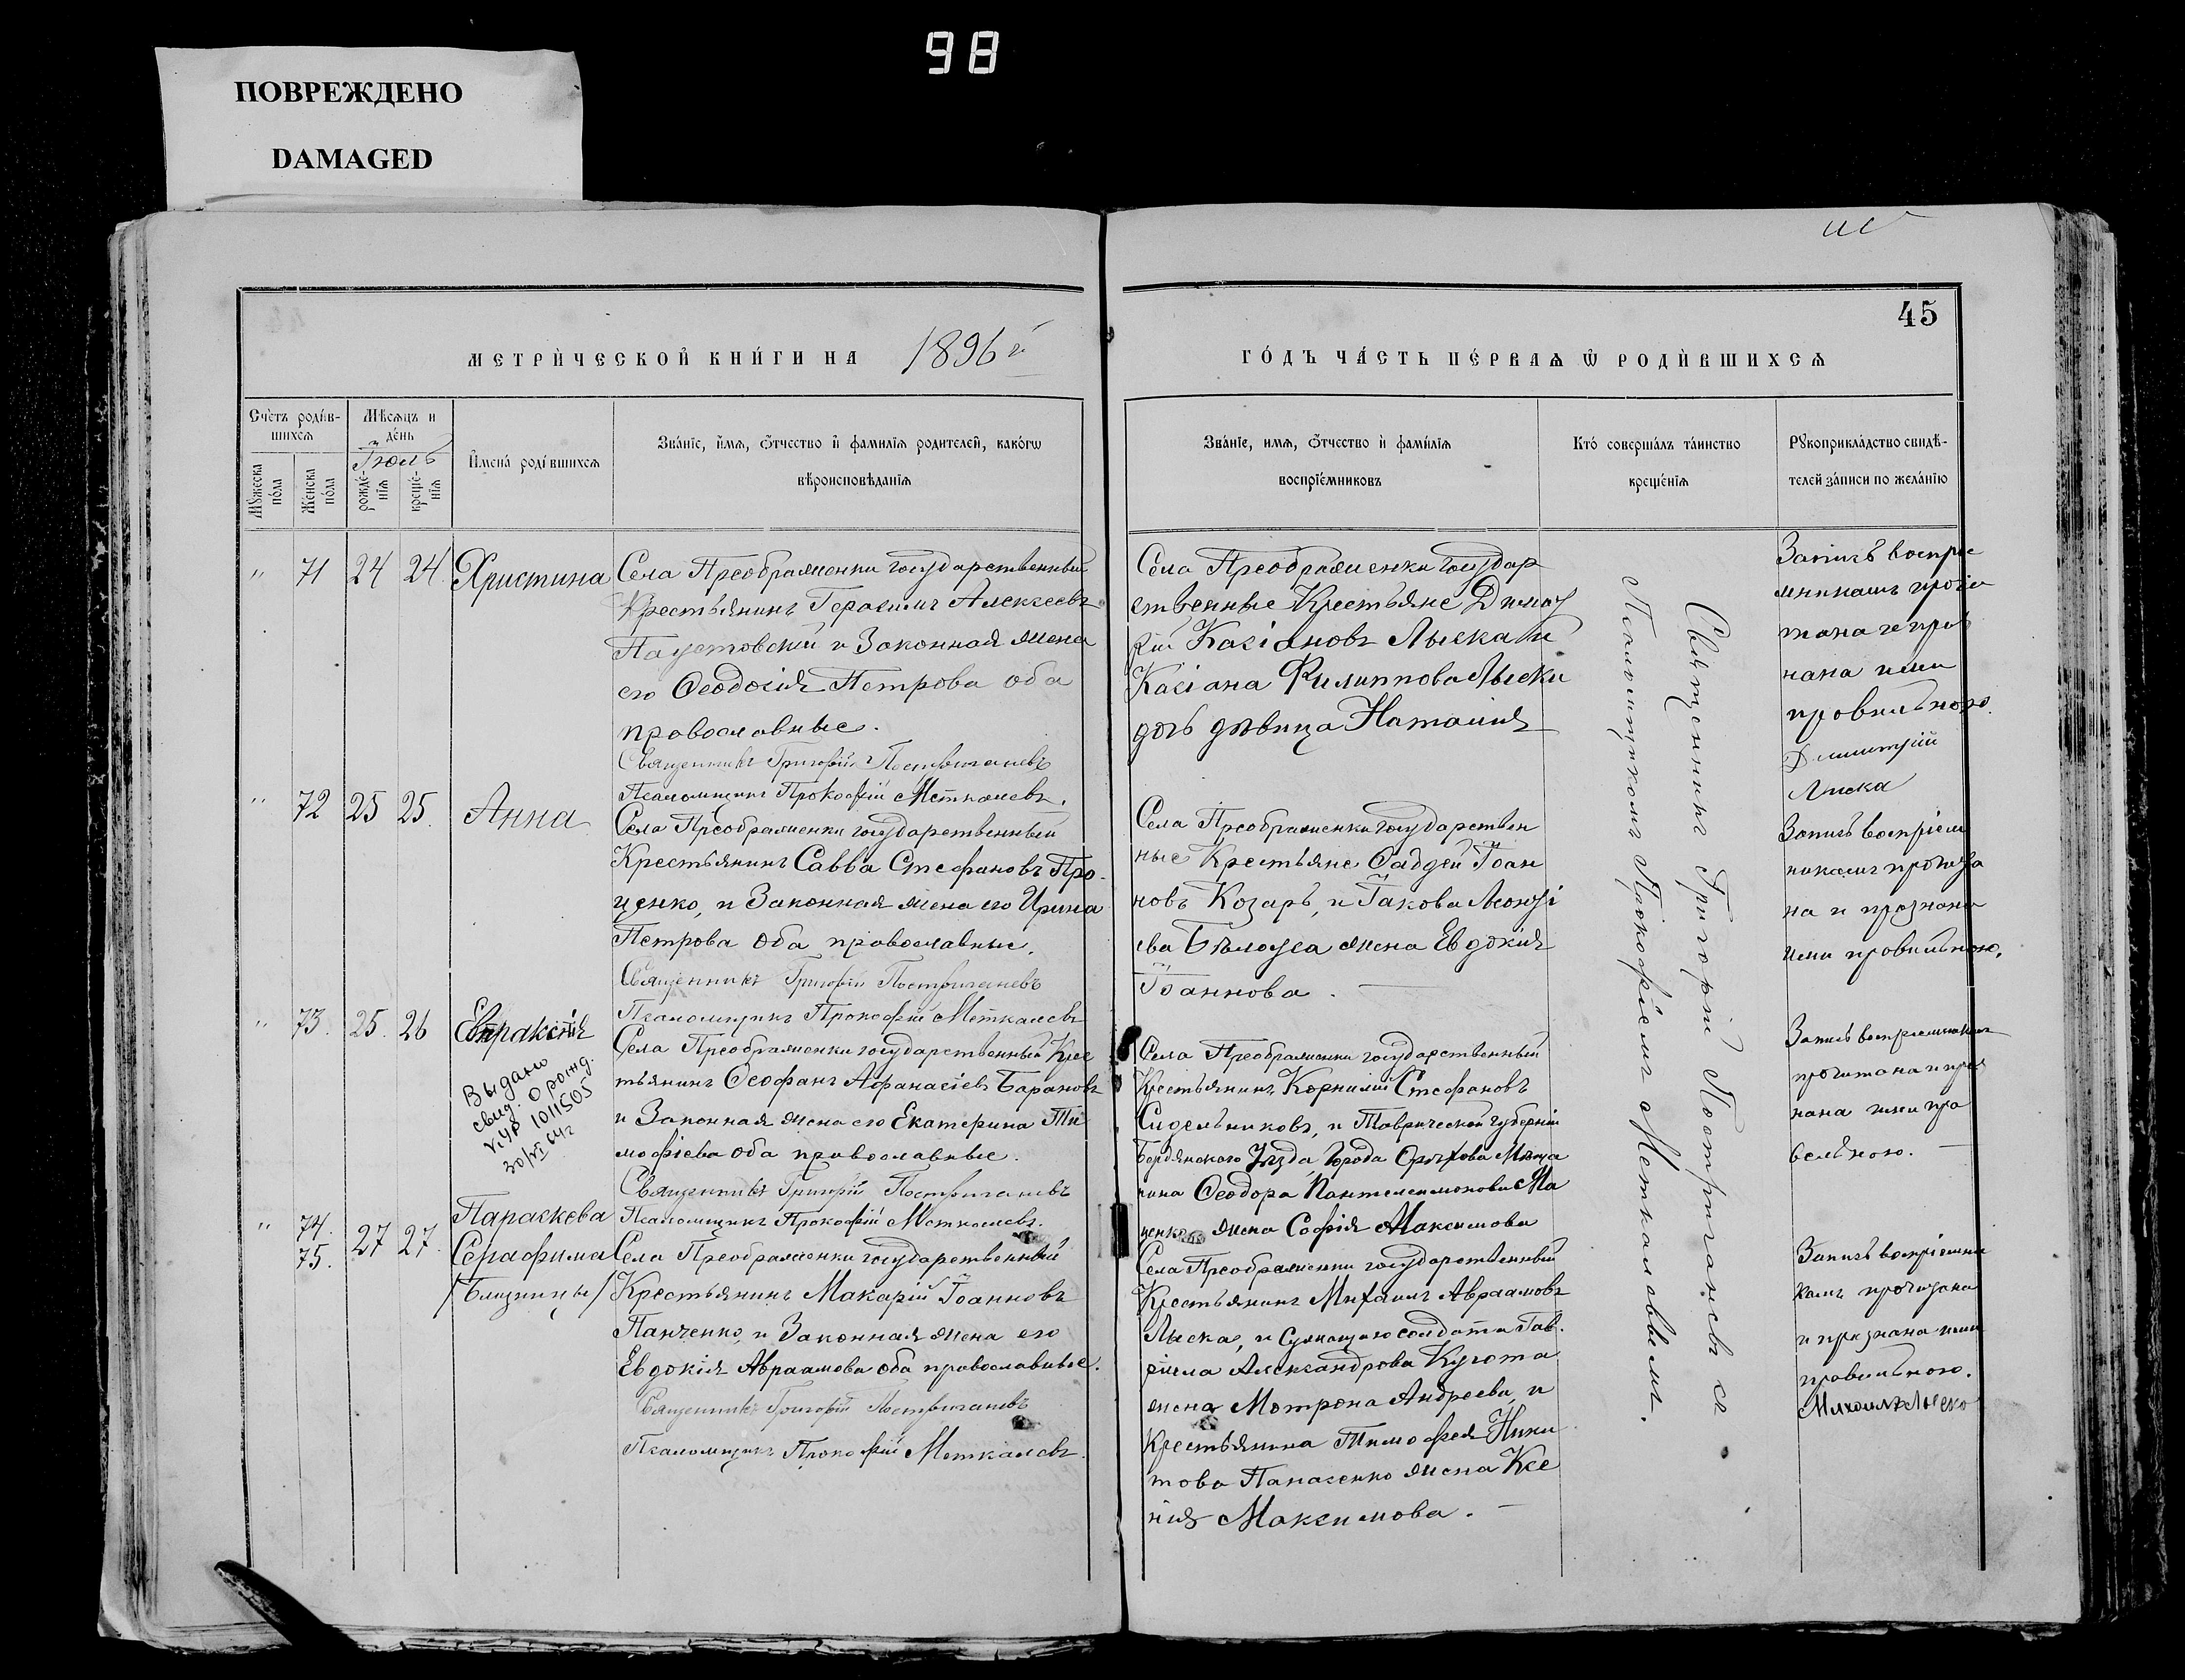 98
ПОВРЕЖДЕНО
DAMAGED
45
МЕТРИЧЕСКОЙ КНИГИ НА 1896 й
ГОДЪ ЧАСТЬ ПЕРВАЯ Ѿ РОДИВШИХСЯ
Счетъ родив-
шихся
Мужеска
пола
Женска
пола
Мѣсяцъ и
день
Іюль
рожде-
нія
креще-
нія
Имена родившихся
Званіе, имя, отчество и фамилія родителей, какогѡ
вѣроисповѣданія
Званіе, имя, отчество и фамилія
воспріемниковъ
Кто совершалъ таинство
крещенія
Рукоприкладство свидѣ-
телей записи по желанію
" 71 24 24 Христина
Села Преображенки государственный
Крестьянинъ Герасимъ Алексеевъ
Паустовский и Законная жена
его Ѳеодосія Петрова оба
православные.
Священникъ Григорій Постригачевъ
Псаломщикъ Прокофій Меткалевъ.
Села Преображенки государ
ственные Крестьяне Димит
рій Касіановъ Лыска и
Касіана Филиппова Лыски
дочь дѣвица Наталія
Запись воспріе
мникамъ прочи
тана и приз
нана ими
правильною.
Димитрій
Лиска
" 72 25 25. Анна
Села Преображенки государственный
Крестьянинъ Савва Стефановъ Про-
ценко, и Законная жена его Ирина
Петрова оба православные.
Священникъ Григорій Постригачевъ
Псаломщикъ Прокофій Меткалевъ
Села Преображенки государствен
ные Крестьяне Ѳаддей Іоан
новъ Козаръ, и Іакова Леонті
ева Бѣлоуса жена Евдокія
Іоаннова. —
Запись воспріем
никамъ прочита
на и признана
ими правильною.
" 73. 25. 26 Евпраксія
Выдано
свид. о рожд.
V. ЧР 1011505
30/VI 64г
Села Преображенки государственный Крес
тьянинъ Ѳеофанъ Афанасіевъ Барановъ
и Законная жена его Екатерина Ти
мофіева оба православные.
Священникъ Григорій Постригачевъ
Псаломщикъ Прокофій Меткалевъ.
Села Преображенки государственный
Крестьянинъ Корнилій Стефановъ
Сидельниковъ, и Таврической губерніи
Бердянскаго Уѣзда, Города Орѣхова Мѣща
нина Ѳеодора Пантелеимонова Ма
ненко жена Софія Максимова
Запись воспріемникамъ
прочитана и приз
нана ими пра
вельною. —
" 74. 75. 27 27. Параскева
Серафима
/Близницы/
Села Преображенки государственный
Крестьянинъ Макарій Іоанновъ
Панченко, и Законная жена его
Евдокія Авраамова оба православные.
Священникъ Григорій Постригачевъ
Псаломщикъ Прокофій Меткалевъ.
Села Преображенки государственный
Крестьянинъ Михаилъ Авраамовъ
Лыска, и служащаго солдата Гав.
ріила Александрова Кугота
жена Матрона Андреева, и
Крестьянина Тимофея Ники
това Панасенко жена Ксе
нія Максимова. —
Запись воспріемни
камъ прочитана
и признана ими
правильною.
Михаилъ Лыско
Священникъ Григорій Постригачевъ съ
Псаломщикомъ Прокофіемъ Меткаловымъ.